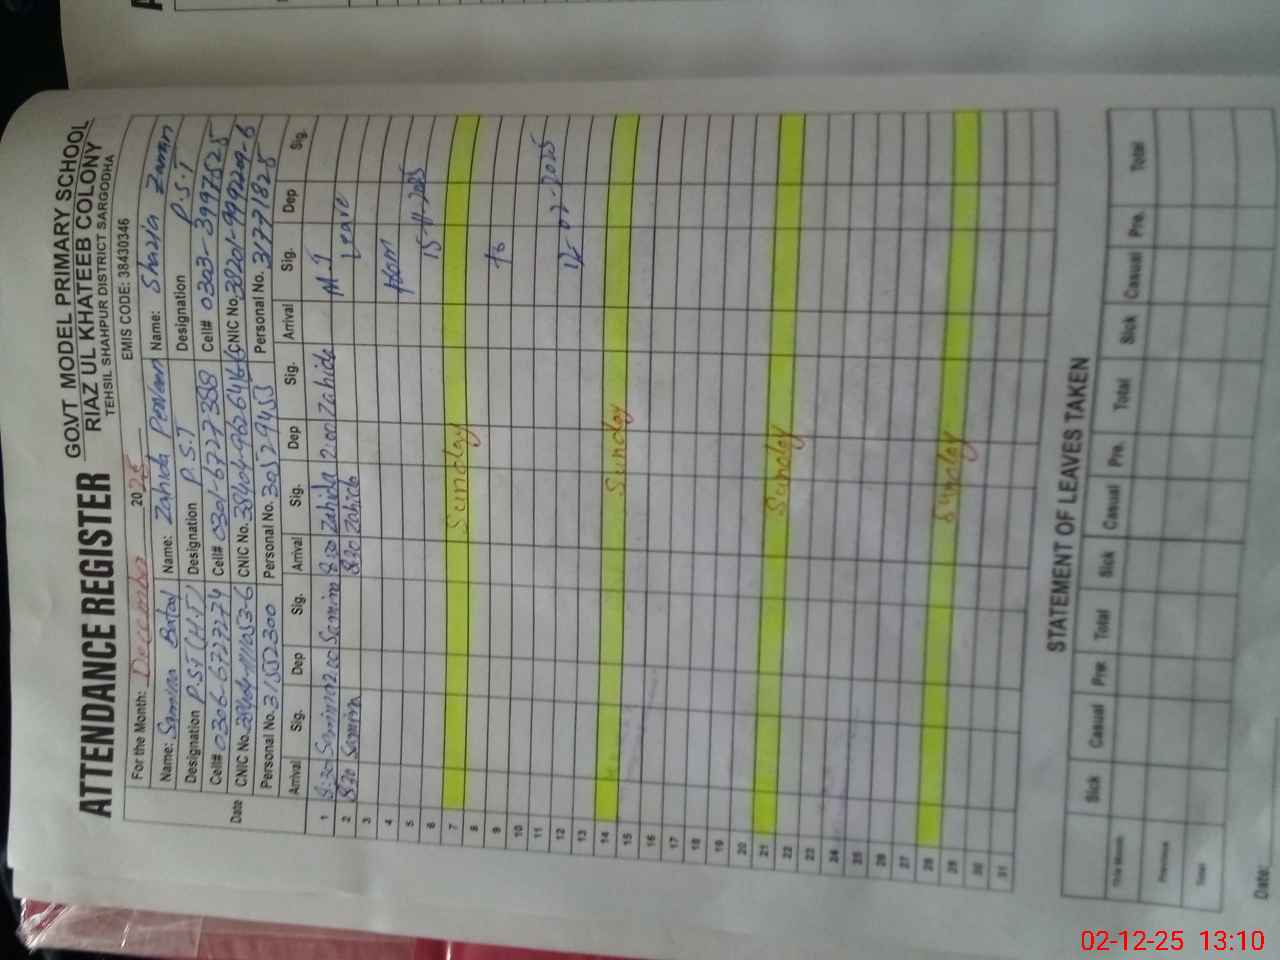 ATTENDANCE REGISTER
GOVT MODEL PRIMARY SCHOOL
RIAZ UL KHATEEB COLONY
TEHSIL SHAHPUR DISTRICT SARGODHA
For the Month: December 2025 EMIS CODE: 38430346
Name: Samina Name: Zahida Perveen Name: Shazia Zaman
Designation P.S.T (H.T) Designation P.S.T Designation P.S.T
Cell# 0306-6727274 Cell# 0301-6727388 Cell# 0303-3997525
CNIC No. CNIC No. CNIC No. 38201-9992209-6
Personal No. 31552300 Personal No. 30529453 Personal No. 31771825
Date Arrival Sig. Dep Sig. Arrival Sig. Dep Sig. Arrival Sig. Dep Sig.
1 8:30 Samina 2.00 Samina 8:30 Zahida 2:00 Zahida
2 8.30 Samina 8.30 Zahida Leave
3
4 from
5 15-11-2025
6
7 Sunday
8
9 to
10
11
12 12-02-2025
13
14 Sunday
15
16
17
18
19
20
21 Sunday
22
23
24
25
26
27
28 Sunday
29
30
31
STATEMENT OF LEAVES TAKEN
Sick Casual Pre. Total Sick Casual Pre. Total Sick Casual Pre. Total
This Month
Previous
Total
Date:
02-12-25 13:10